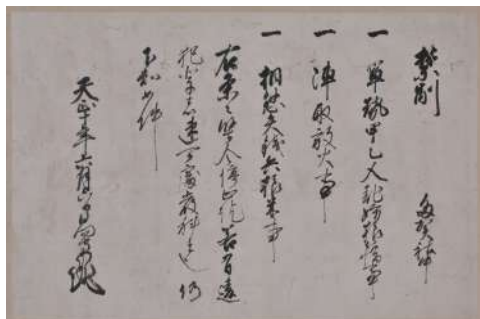 禁制　多賀社
一 軍勢甲乙人乱妨狼藉事
一 陣取放火事
一 相懸矢銭兵粮米事
右条々堅令停止訖若有違
犯輩者速可処厳科者也仍
下知如件
天正十年六月六日日向守